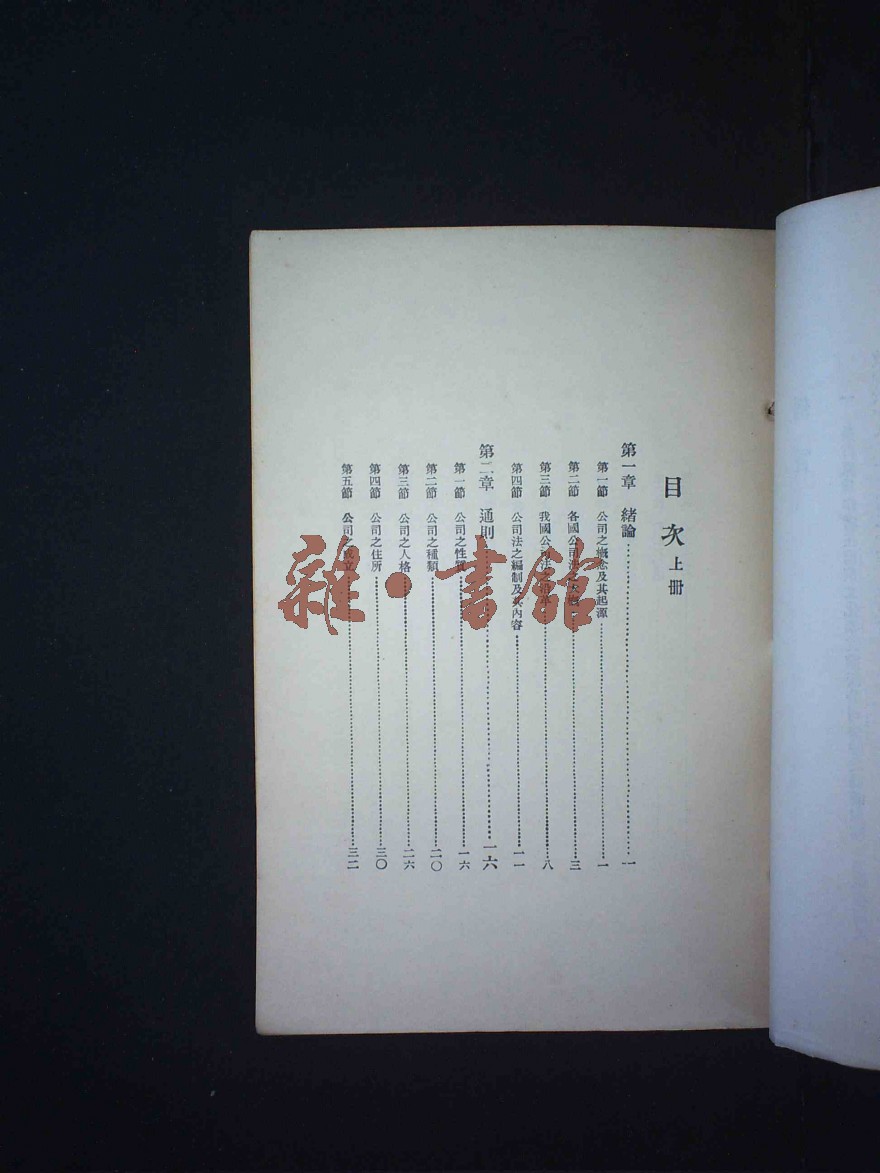 目次 上冊
第一章 緒論……一
第一節 公司之概念及其起源……一
第二節 各國公司法之……三
第三節 我國公司法之……八
第四節 公司法之編制及其內容……一一
第二章 通則……一六
第一節 公司之性質……一六
第二節 公司之種類……二〇
第三節 公司之人格……二六
第四節 公司之住所……三〇
第五節 公司之成立……三二
雜·書館